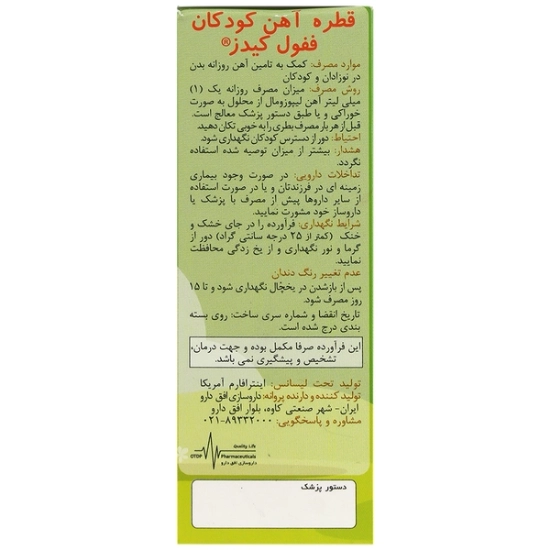 قطره آهن کودکان
ففول کیدز®
موارد مصرف: کمک به تامین آهن روزانه بدن
در نوزادان و کودکان
روش مصرف: میزان مصرف روزانه یک (۱)
میلی لیتر آهن لیپوزومال از محلول به صورت
خوراکی و یا طبق دستور پزشک معالج است.
قبل از هر بار مصرف بطری را به خوبی تکان دهید.
احتیاط: دور از دسترس کودکان نگهداری شود.
هشدار: بیشتر از میزان توصیه شده استفاده
نگردد.
تداخلات دارویی: در صورت وجود بیماری
زمینه ای در فرزندتان و یا در صورت استفاده
از سایر داروها پیش از مصرف با پزشک یا
داروساز خود مشورت نمایید.
شرایط نگهداری: فرآورده را در جای خشک و
خنک (کمتر از ۲۵ درجه سانتی گراد) دور از
گرما و نور نگهداری و از یخ زدگی محافظت
نمایید.
عدم تغییر رنگ دندان
پس از بازشدن در یخچال نگهداری شود و تا ۱۵
روز مصرف شود.
تاریخ انقضا و شماره سری ساخت: روی بسته
بندی درج شده است.
این فرآورده صرفا مکمل بوده و جهت درمان،
تشخیص و پیشگیری نمی باشد.
تولید تحت لیسانس: اینترافارم آمریکا
تولید کننده و دارنده پروانه: داروسازی افق دارو
ایران- شهر صنعتی کاوه، بلوار افق دارو
مشاوره و پاسخگویی: ۸۹۳۳۲۰۰۰-۰۲۱
OTDP
Pharmaceuticals
داروسازی افق دارو
دستور پزشک